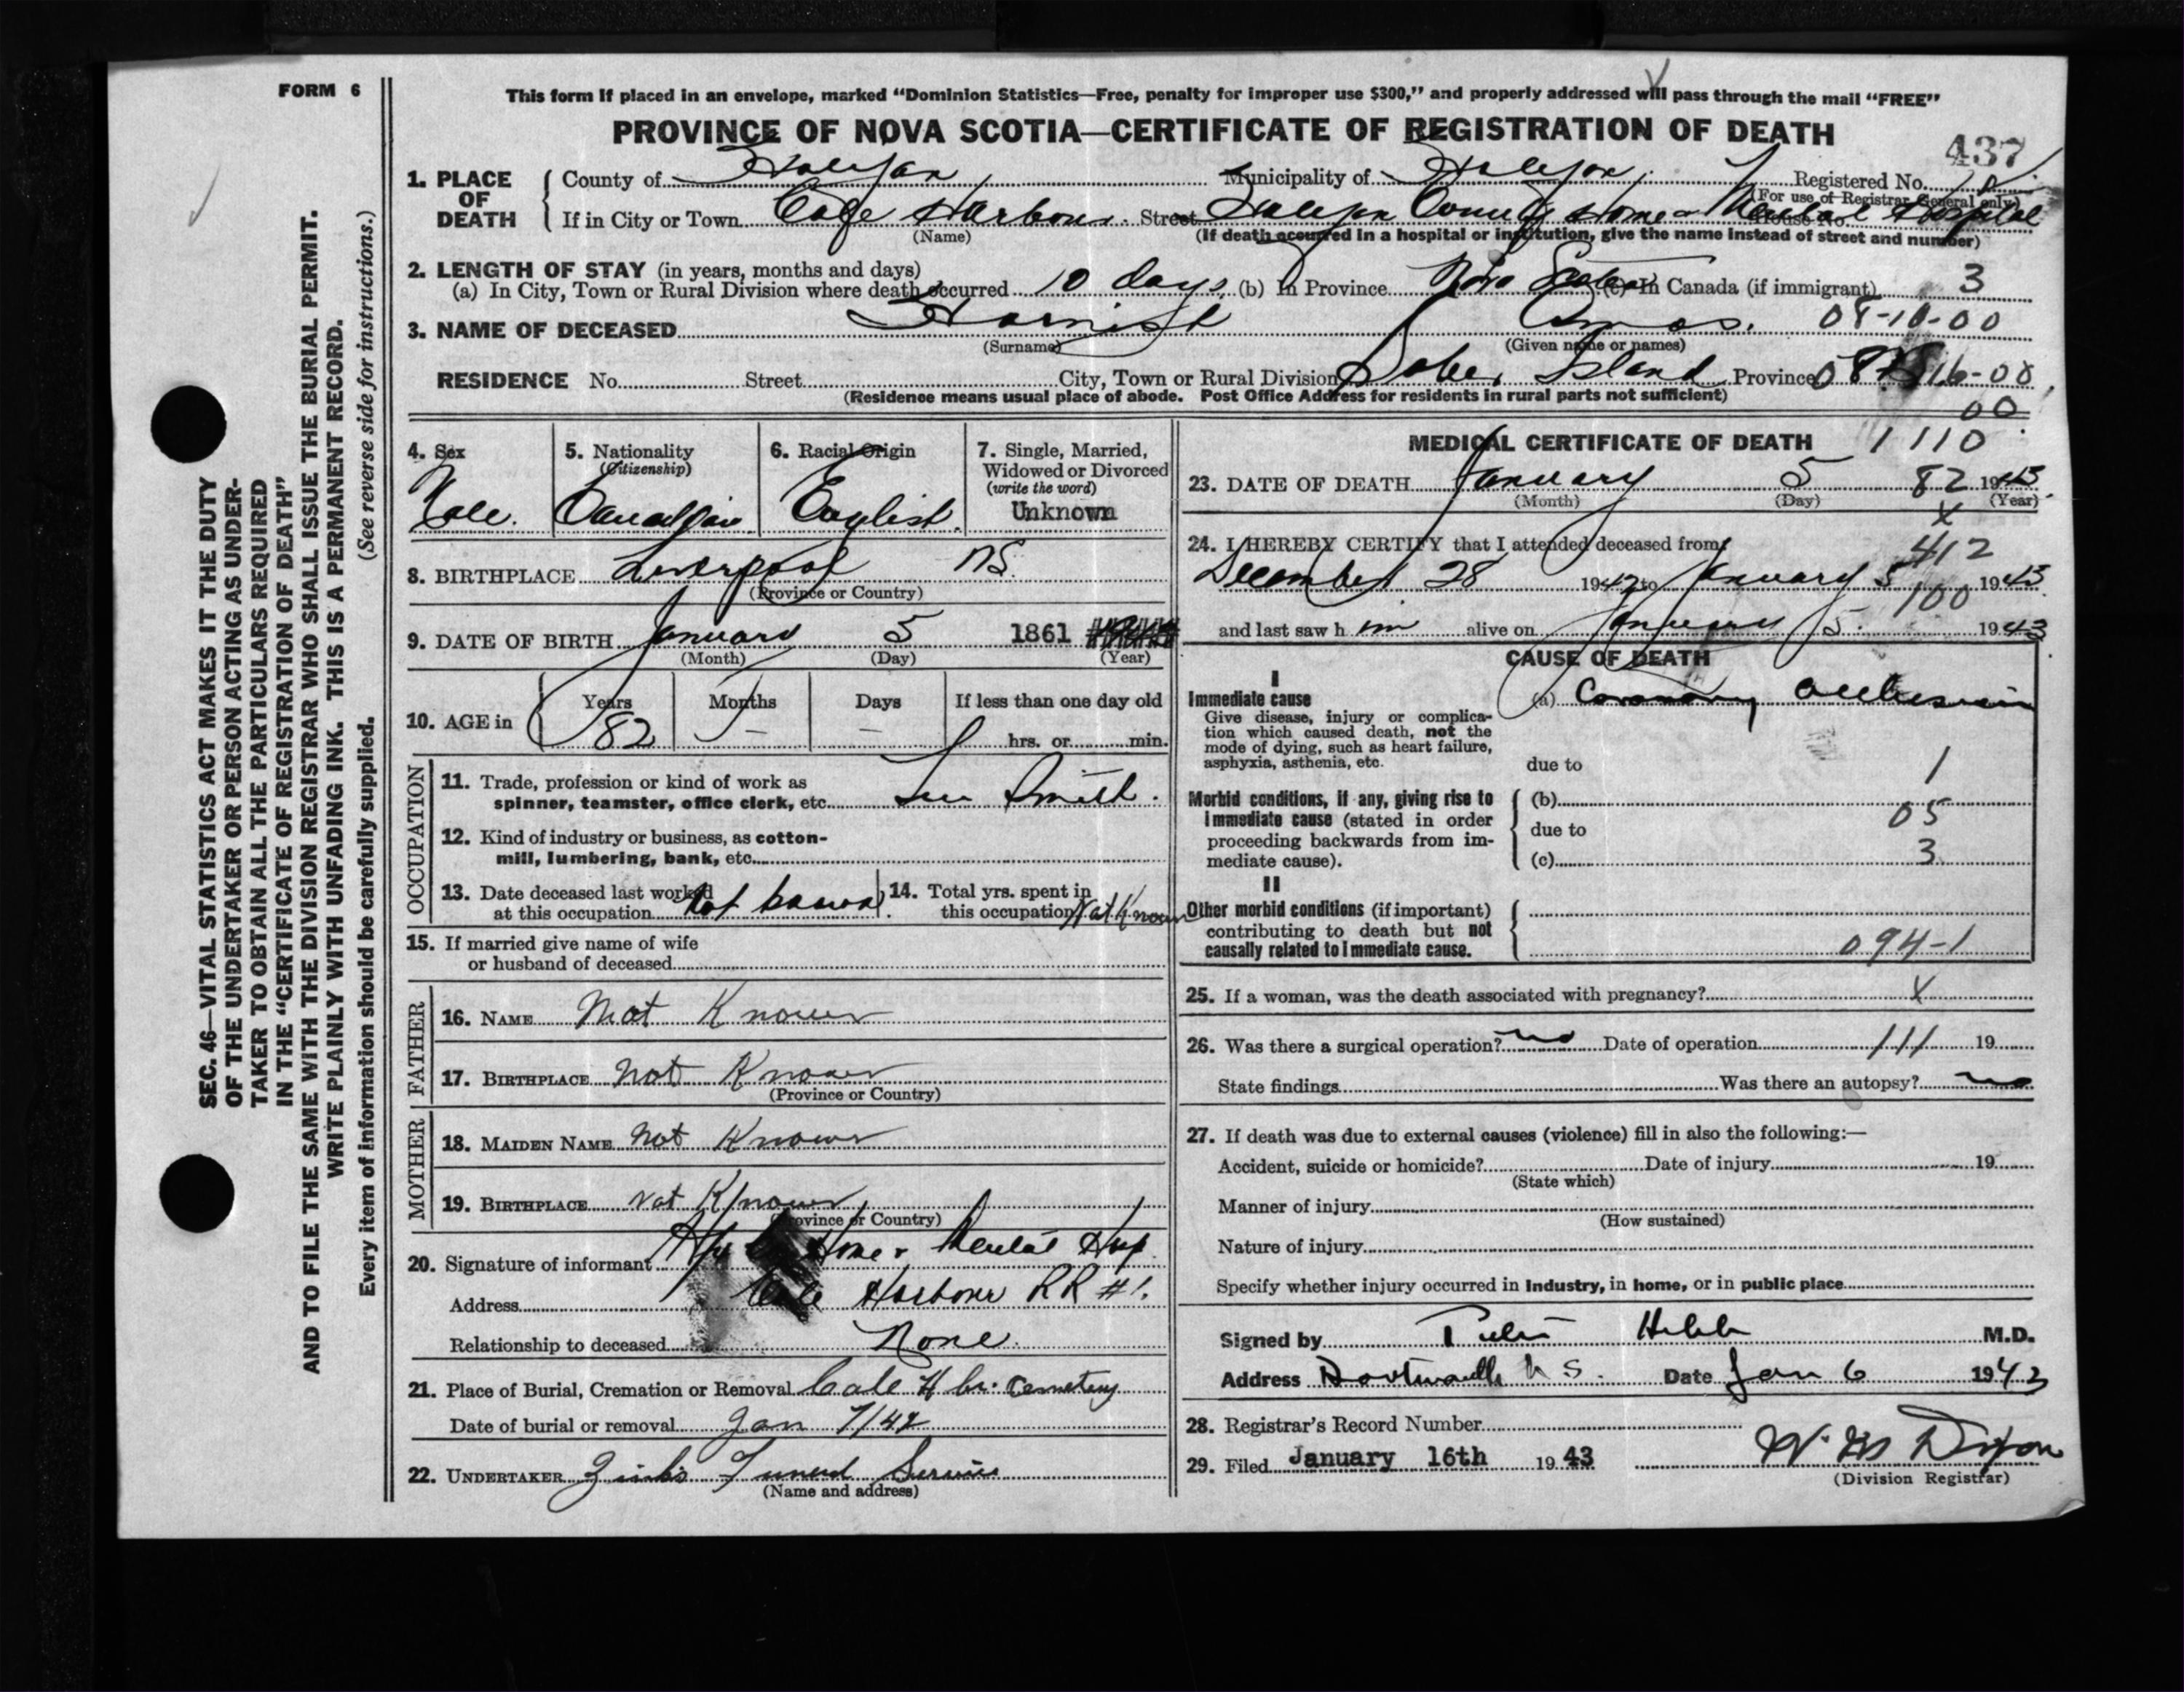 FORM 6
This form if placed in an envelope, marked “Dominion Statistics—Free, penalty for improper use $300,” and properly addressed will pass through the mail “FREE”
PROVINCE OF NOVA SCOTIA—CERTIFICATE OF REGISTRATION OF DEATH
437
1. PLACE OF DEATH
County of Halifax Municipality of Halifax Registered No.
(For use of Registrar General only)
If in City or Town Cole Harbour Street Halifax County Home & Mental Hospital House No.
(Name) (If death occurred in a hospital or institution, give the name instead of street and number)
2. LENGTH OF STAY (in years, months and days)
(a) In City, Town or Rural Division where death occurred 10 days (b) In Province Nova Scotia (c) In Canada (if immigrant) 3
3. NAME OF DECEASED Harnish Amos. 08-10-00
(Surname) (Given name or names)
RESIDENCE No. Street City, Town or Rural Division Sober Island Province 16-00
(Residence means usual place of abode. Post Office Address for residents in rural parts not sufficient)
00
4. Sex
Male.
5. Nationality
(Citizenship)
Canadian
6. Racial Origin
English.
7. Single, Married,
Widowed or Divorced
(write the word)
Unknown
8. BIRTHPLACE Liverpool NS.
(Province or Country)
9. DATE OF BIRTH January 5 1861
(Month) (Day) (Year)
10. AGE in Years Months Days If less than one day old
82 - - hrs. or min.
OCCUPATION
11. Trade, profession or kind of work as
spinner, teamster, office clerk, etc. Smith.
12. Kind of industry or business, as cotton-
mill, lumbering, bank, etc.
13. Date deceased last worked
at this occupation Not known
14. Total yrs. spent in
this occupation Not Known
15. If married give name of wife
or husband of deceased
FATHER
16. NAME Not Known
17. BIRTHPLACE Not Known
(Province or Country)
MOTHER
18. MAIDEN NAME Not Known
19. BIRTHPLACE Not Known
(Province or Country)
20. Signature of informant Home & Mental Hosp.
Address Cole Harbour RR #1.
Relationship to deceased None.
21. Place of Burial, Cremation or Removal Cole Hbr. Cemetery
Date of burial or removal Jan 7/42
22. UNDERTAKER Zink's Funeral Service
(Name and address)
MEDICAL CERTIFICATE OF DEATH 1110
23. DATE OF DEATH January 5 82 1943
(Month) (Day) (Year)
x
24. I HEREBY CERTIFY that I attended deceased from 412
December 28 1942 to January 5 1943
100
and last saw h im alive on January 5. 1943
CAUSE OF DEATH
I
Immediate cause
(a) Coronary occlusion
Give disease, injury or complica-
tion which caused death, not the
mode of dying, such as heart failure,
asphyxia, asthenia, etc.
due to 1
Morbid conditions, if any, giving rise to
immediate cause (stated in order
proceeding backwards from im-
mediate cause).
(b) 05
due to
(c) 3
II
Other morbid conditions (if important)
contributing to death but not
causally related to immediate cause. 094-1
25. If a woman, was the death associated with pregnancy? x
26. Was there a surgical operation? no Date of operation 111 19
State findings Was there an autopsy? no
27. If death was due to external causes (violence) fill in also the following:—
Accident, suicide or homicide? Date of injury 19
(State which)
Manner of injury
(How sustained)
Nature of injury
Specify whether injury occurred in industry, in home, or in public place
Signed by Hebb M.D.
Address Dartmouth N S. Date Jan 6 1943
28. Registrar's Record Number
29. Filed January 16th 1943 Dixon
(Division Registrar)
SEC. 46—VITAL STATISTICS ACT MAKES IT THE DUTY
OF THE UNDERTAKER OR PERSON ACTING AS UNDER-
TAKER TO OBTAIN ALL THE PARTICULARS REQUIRED
IN THE “CERTIFICATE OF REGISTRATION OF DEATH”
AND TO FILE THE SAME WITH THE DIVISION REGISTRAR WHO SHALL ISSUE THE BURIAL PERMIT.
WRITE PLAINLY WITH UNFADING INK. THIS IS A PERMANENT RECORD.
Every item of information should be carefully supplied. (See reverse side for instructions.)